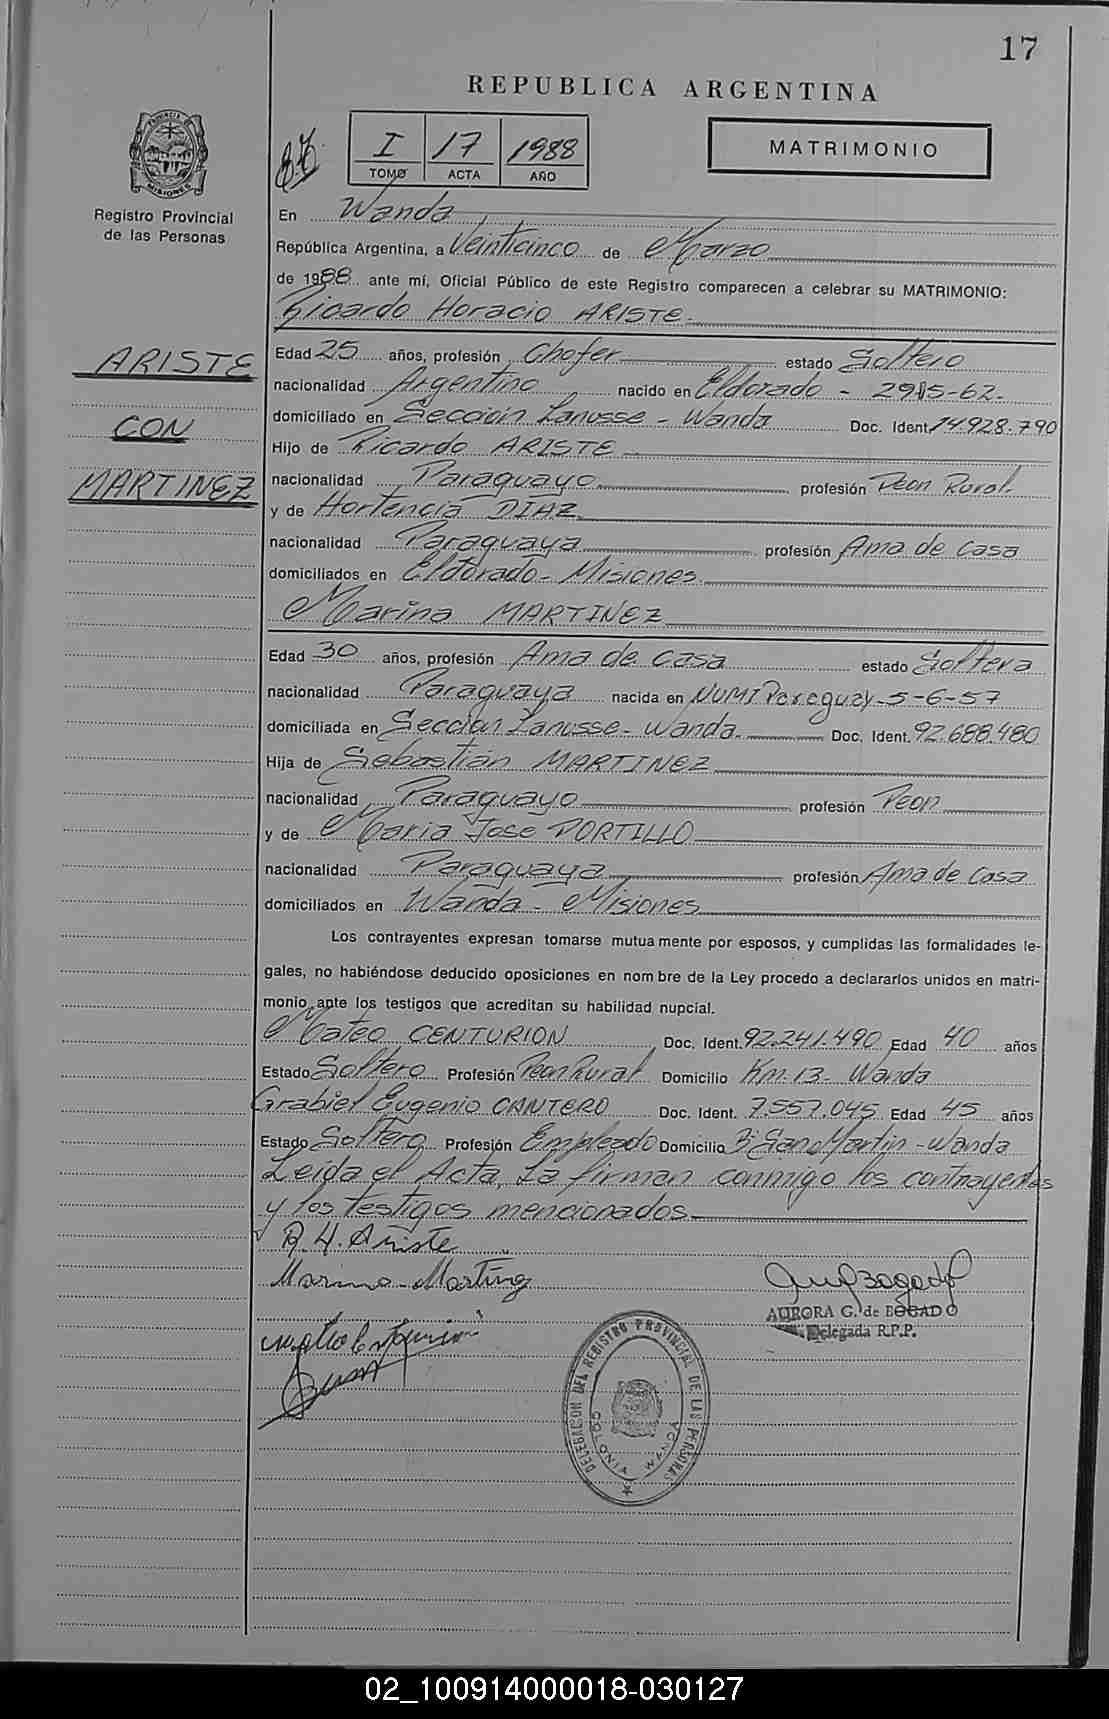 17
REPUBLICA ARGENTINA
PROVINCIA DE MISIONES
Registro Provincial
de las Personas
I 17 1988
TOMO ACTA AÑO
MATRIMONIO
En Wanda,
República Argentina, a Veinticinco de Marzo
de 1988 ante mí, Oficial Público de este Registro comparecen a celebrar su MATRIMONIO:
Ricardo Horacio ARISTE
ARISTE
CON
MARTINEZ
Edad 25 años, profesión Chofer estado Soltero
nacionalidad Argentino nacido en Eldorado - 29-5-62-
domiciliado en Sección Lanusse - Wanda Doc. Ident. 14.928.790
Hijo de Ricardo ARISTE
nacionalidad Paraguayo profesión Peon Rural
y de Hortencia DIAZ
nacionalidad Paraguaya profesión Ama de casa
domiciliados en Eldorado - Misiones
Marina MARTINEZ
Edad 30 años, profesión Ama de casa estado Soltera
nacionalidad Paraguaya nacida en NUMI Paraguay - 5-6-57
domiciliada en Sección Lanusse - Wanda. Doc. Ident. 92.688.480
Hija de Sebastián MARTINEZ
nacionalidad Paraguayo profesión Peon
y de Maria Jose PORTILLO
nacionalidad Paraguaya profesión Ama de casa
domiciliados en Wanda - Misiones
Los contrayentes expresan tomarse mutuamente por esposos, y cumplidas las formalidades le-
gales, no habiéndose deducido oposiciones en nombre de la Ley procedo a declararlos unidos en matri-
monio ante los testigos que acreditan su habilidad nupcial.
Mateo CENTURION Doc. Ident. 92.241.490 Edad 40 años
Estado Soltero Profesión Peon Rural Domicilio Km. 13 - Wanda
Grabiel Eugenio CANTERO Doc. Ident. 7.557.045 Edad 45 años
Estado Soltero Profesión Empleado Domicilio Bº San Martin - Wanda
Leída el Acta, La firman conmigo los contrayentes
y los testigos mencionados
R. H. Ariste
Marina Martinez
AURORA G. de BOGADO
Delegada R.P.P.
DELEGACION DEL REGISTRO PROVINCIAL DE LAS PERSONAS
COLONIA WANDA
02_100914000018-030127